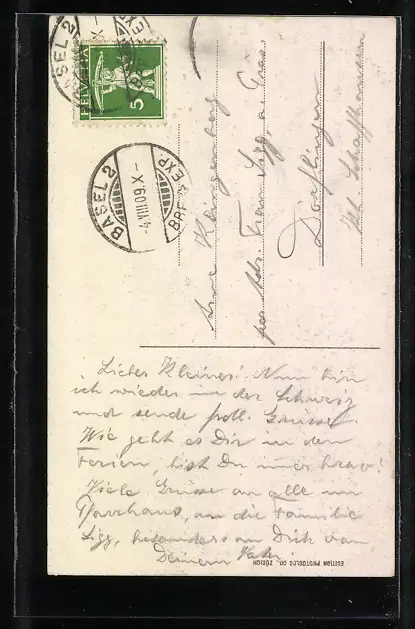 HELVETIA
5
BASEL 2
BASEL 2
-4.VIII.09.X-
BRF. EXP.
Klingenberg
Frau Sigg, a. Tine
Dörflingen
Kt. Schaffhausen
Lieber Kleiner! Nun bin
ich wieder in der Schweiz
und sende Grüsse.
Wie geht es Dir in den
Ferien, bist Du immer brav?
Viele Grüsse an alle im
Pfarrhaus, an die Familie
Sigg, besonders an Dich von
Deinem Vater
EDITION PHOTOGLOB CO. ZÜRICH